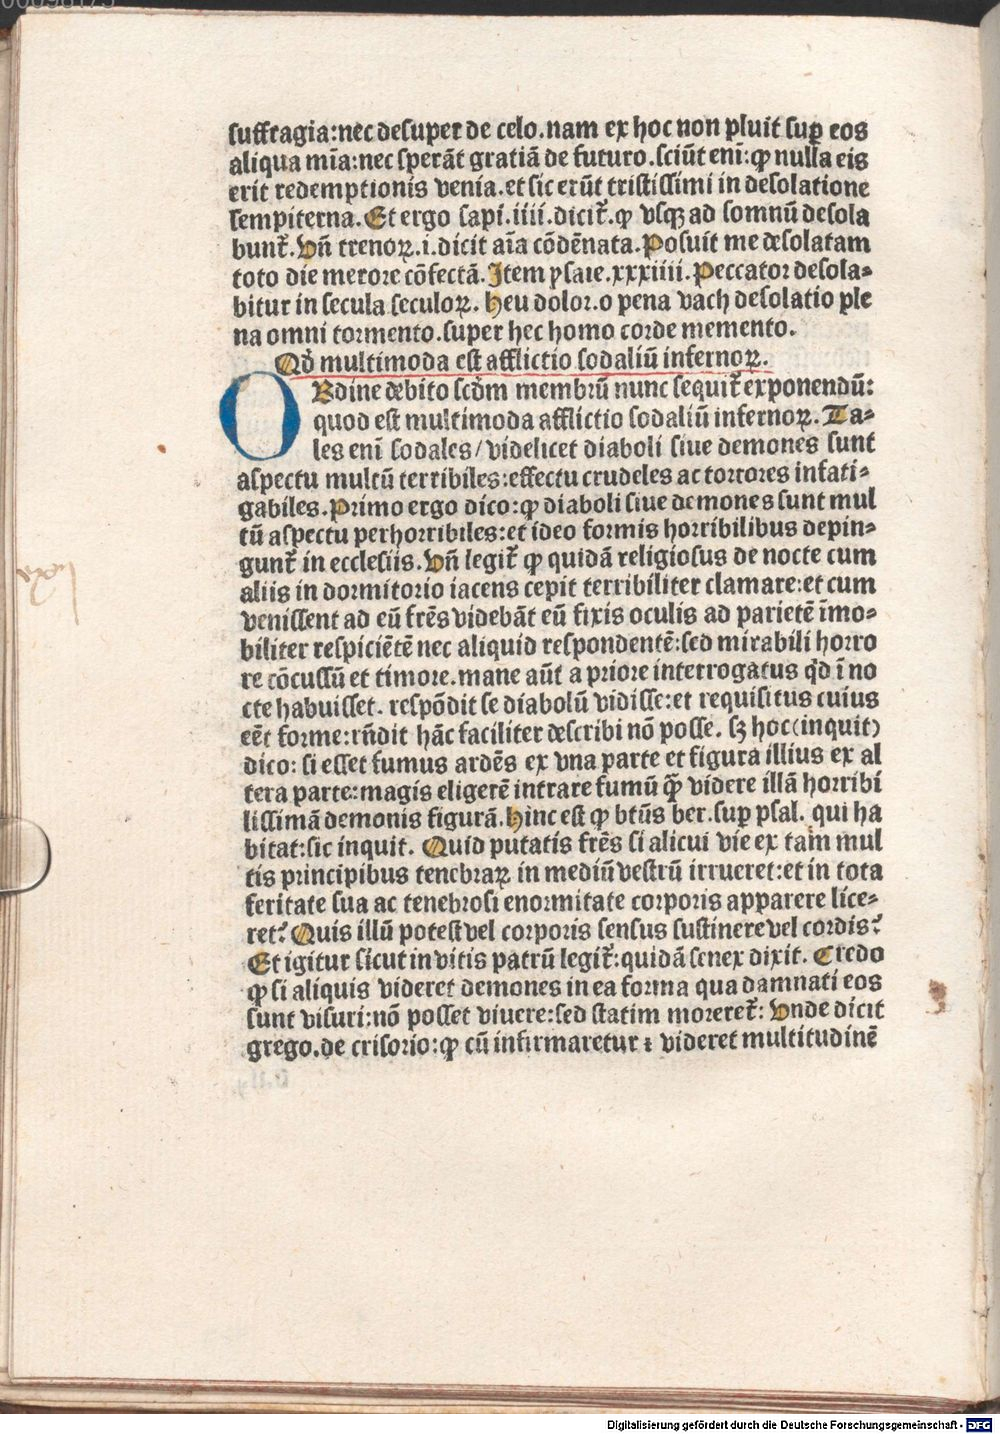 suffragia:nec desuper de celo.nam ex hoc non pluit suꝑ eos
aliqua mĩa:nec sperãt gratiã de futuro.sciũt eni̅:ꝙ nulla eis
erit redemptionis venia.et sic erũt tristissimi in desolatione
sempiterna. Et ergo sapi.iiii.dicit᷑.ꝙ vsqꝫ ad somnũ desola
bunt᷑. Vñ trenoꝝ.i.dicit aĩa cõdẽnata. Posuit me desolatam
toto die merore cõfectã. Item ysaie.xxxiiii. Peccator desola-
bitur in secula seculoꝝ. Heu dolor.o pena vach desolatio ple
na omni tormento.super hec homo corde memento.
Qď multimoda est afflictio sodaliũ infernoꝝ.
ORdine debito scďm membrũ nunc sequit᷑ exponendũ:
quod est multimoda afflictio sodaliũ infernoꝝ. Ta-
les eni̅ sodales/ videlicet diaboli siue demones sunt
aspectu multũ terribiles:effectu crudeles ac tortores infati-
gabiles. Primo ergo dico:ꝙ diaboli siue demones sunt mul
tũ aspectu perhorribiles:et ideo formis horribilibus depin-
gunt᷑ in ecclesiis. Vñ legit᷑ ꝙ quidã religiosus de nocte cum
aliis in dormitorio iacens cepit terribiliter clamare:et cum
venissent ad eũ frẽs videbãt eũ fixis oculis ad parietẽ ĩmo-
biliter respiciẽtẽ nec aliquid respondentẽ:sed mirabili horro
re cõcussũ et timore.mane aũt a priore interrogatus qď ĩ no
cte habuisset. respõdit se diabolũ vidisse:et requisitus cuius
eẽt forme:rñdit hãc faciliter describi nõ posse. sꝫ hoc(inquit)
dico: si esset fumus ardẽs ex vna parte et figura illius ex al
tera parte:magis eligerẽ intrare fumũ q̃ꝫ videre illã horribi
lissimã demonis figurã. Hinc est ꝙ btũs ber.sup psal. qui ha
bitat:sic inquit. Quid putatis frẽs si alicui vie ex tam mul
tis principibus tenebraꝝ in mediũ vestrũ irrueret:et in tota
feritate sua ac tenebrosi enormitate corporis apparere lice-
ret? Quis illũ potest vel corporis sensus sustinere vel cordis?
Et igitur sicut in vitis patrũ legit᷑:quidã senex dixit. Credo
ꝙ si aliquis videret demones in ea forma qua damnati eos
sunt visuri:nõ posset viuere:sed statim moreret᷑: Vnde dicit
grego.de crisorio:ꝙ cũ infirmaretur ⁊ videret multitudinẽ
Digitalisierung gefördert durch die Deutsche Forschungsgemeinschaft - DFG